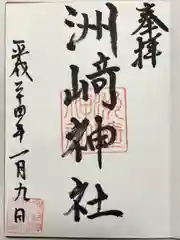 奉拝
洲崎神社
平成二十四年一月九日